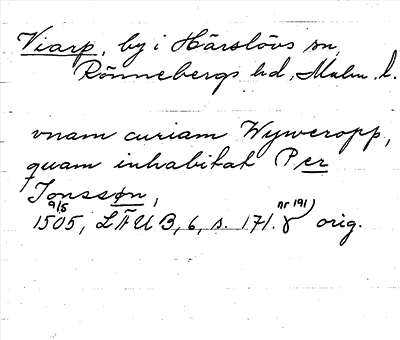 Viarp, by i Härslövs sn,
Rönnebergs hd, Malm. l.
vnam curiam Wyweropp,
quam inhabitat Per
Jonssøn,
9/5
1505, LÄUB, 6, s. 171. nr 191 orig.